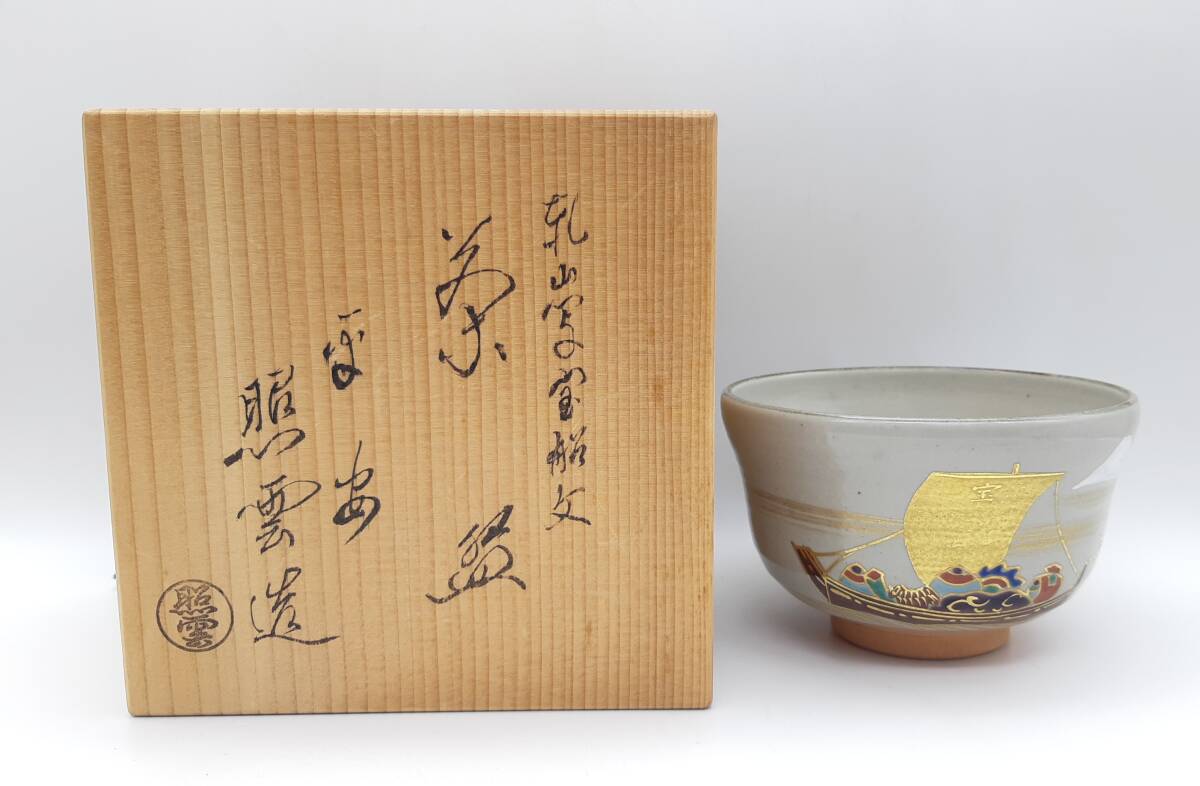 乾山写宝船文
茶盌
平安
照雲造
照雲
宝